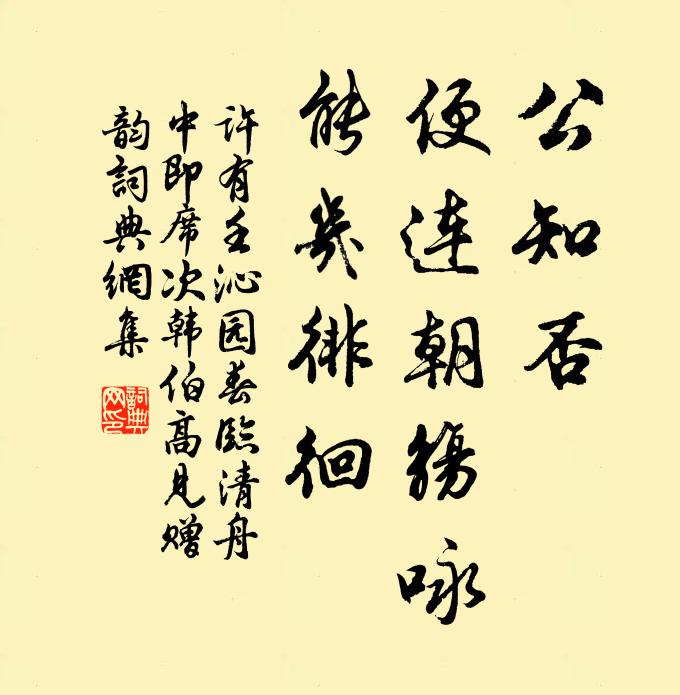 公知否
便连朝觞咏
能几徘徊
许有壬沁园春临清舟
中即席次韩伯高见赠
韵词典網集
詞典網印